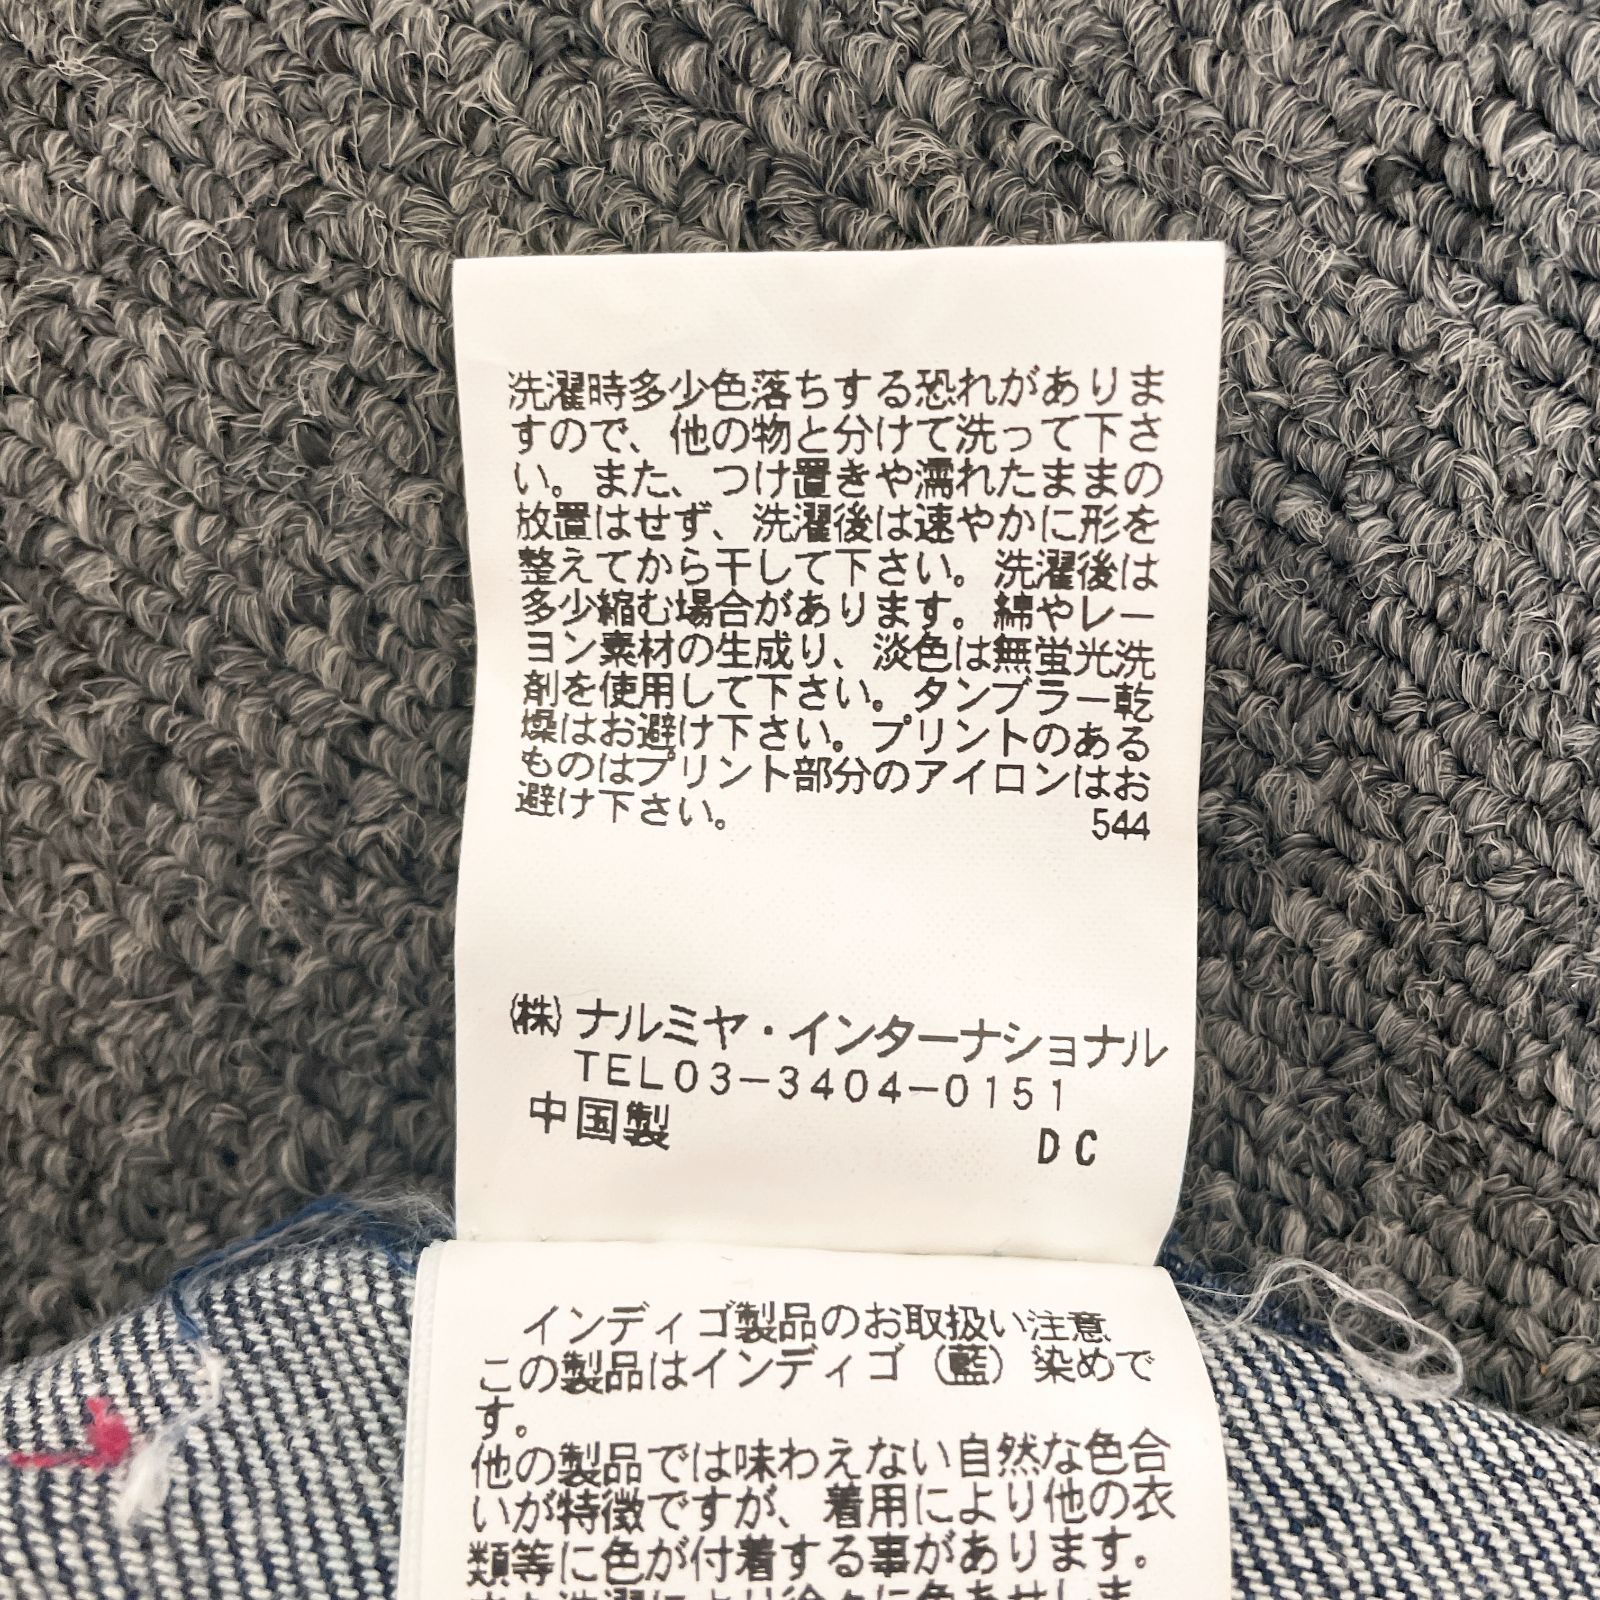 洗濯時多少色落ちする恐れがありま
すので、他の物と分けて洗って下さ
い。また、つけ置きや濡れたままの
放置はせず、洗濯後は速やかに形を
整えてから干して下さい。洗濯後は
多少縮む場合があります。綿やレー
ヨン素材の生成り、淡色は無蛍光洗
剤を使用して下さい。タンブラー乾
燥はお避け下さい。プリントのある
ものはプリント部分のアイロンはお
避け下さい。 544
㈱ナルミヤ・インターナショナル
TEL03-3404-0151
中国製 DC
インディゴ製品のお取扱い注意
この製品はインディゴ（藍）染めで
す。
他の製品では味わえない自然な色合
いが特徴ですが、着用により他の衣
類等に色が付着する事があります。